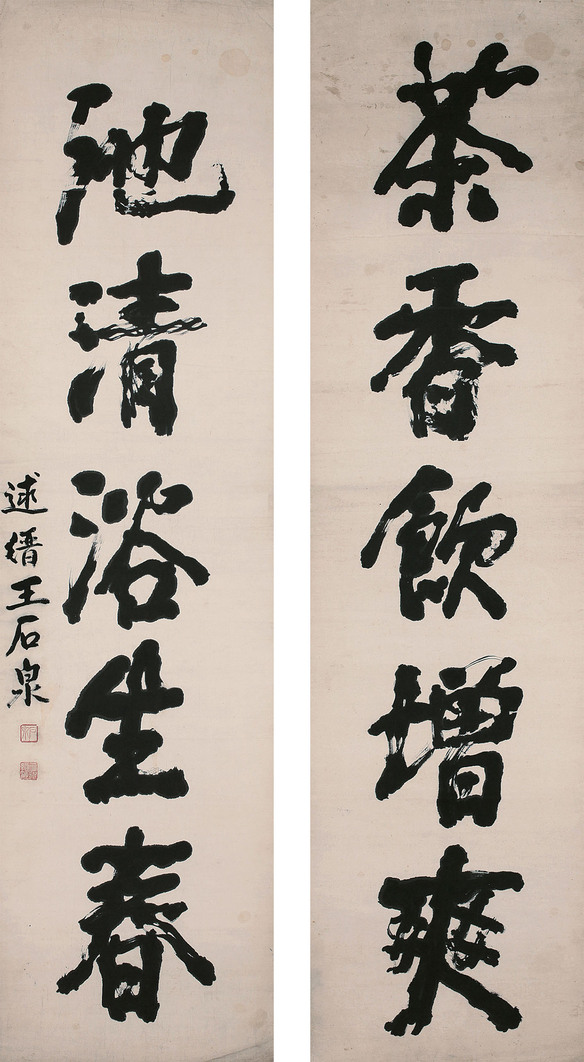 茶香飲增爽
池清浴生春
述縉王石泉